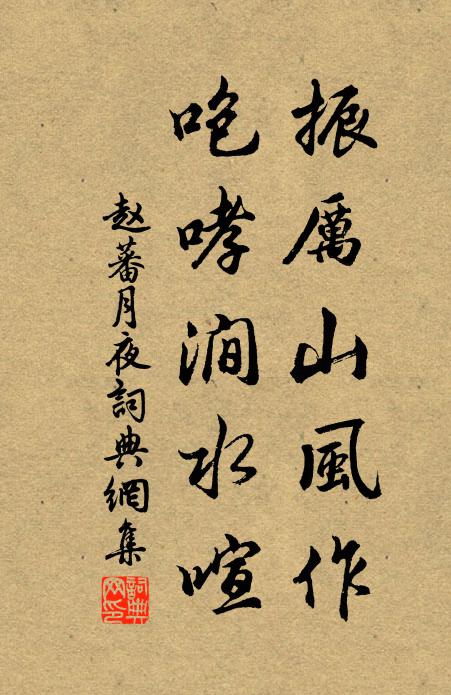 振厲山風作
咆哮澗水喧
赵蕃月夜詞典網集
詞典网印